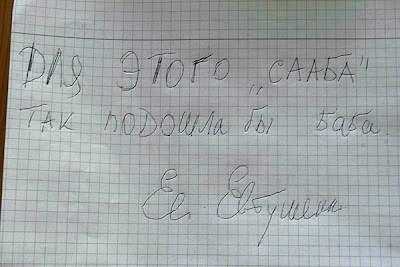 ДЛЯ ЭТОГО „СААБА"
ТАК ПОДОШЛА БЫ БАБА.
Ев. Евтушенко